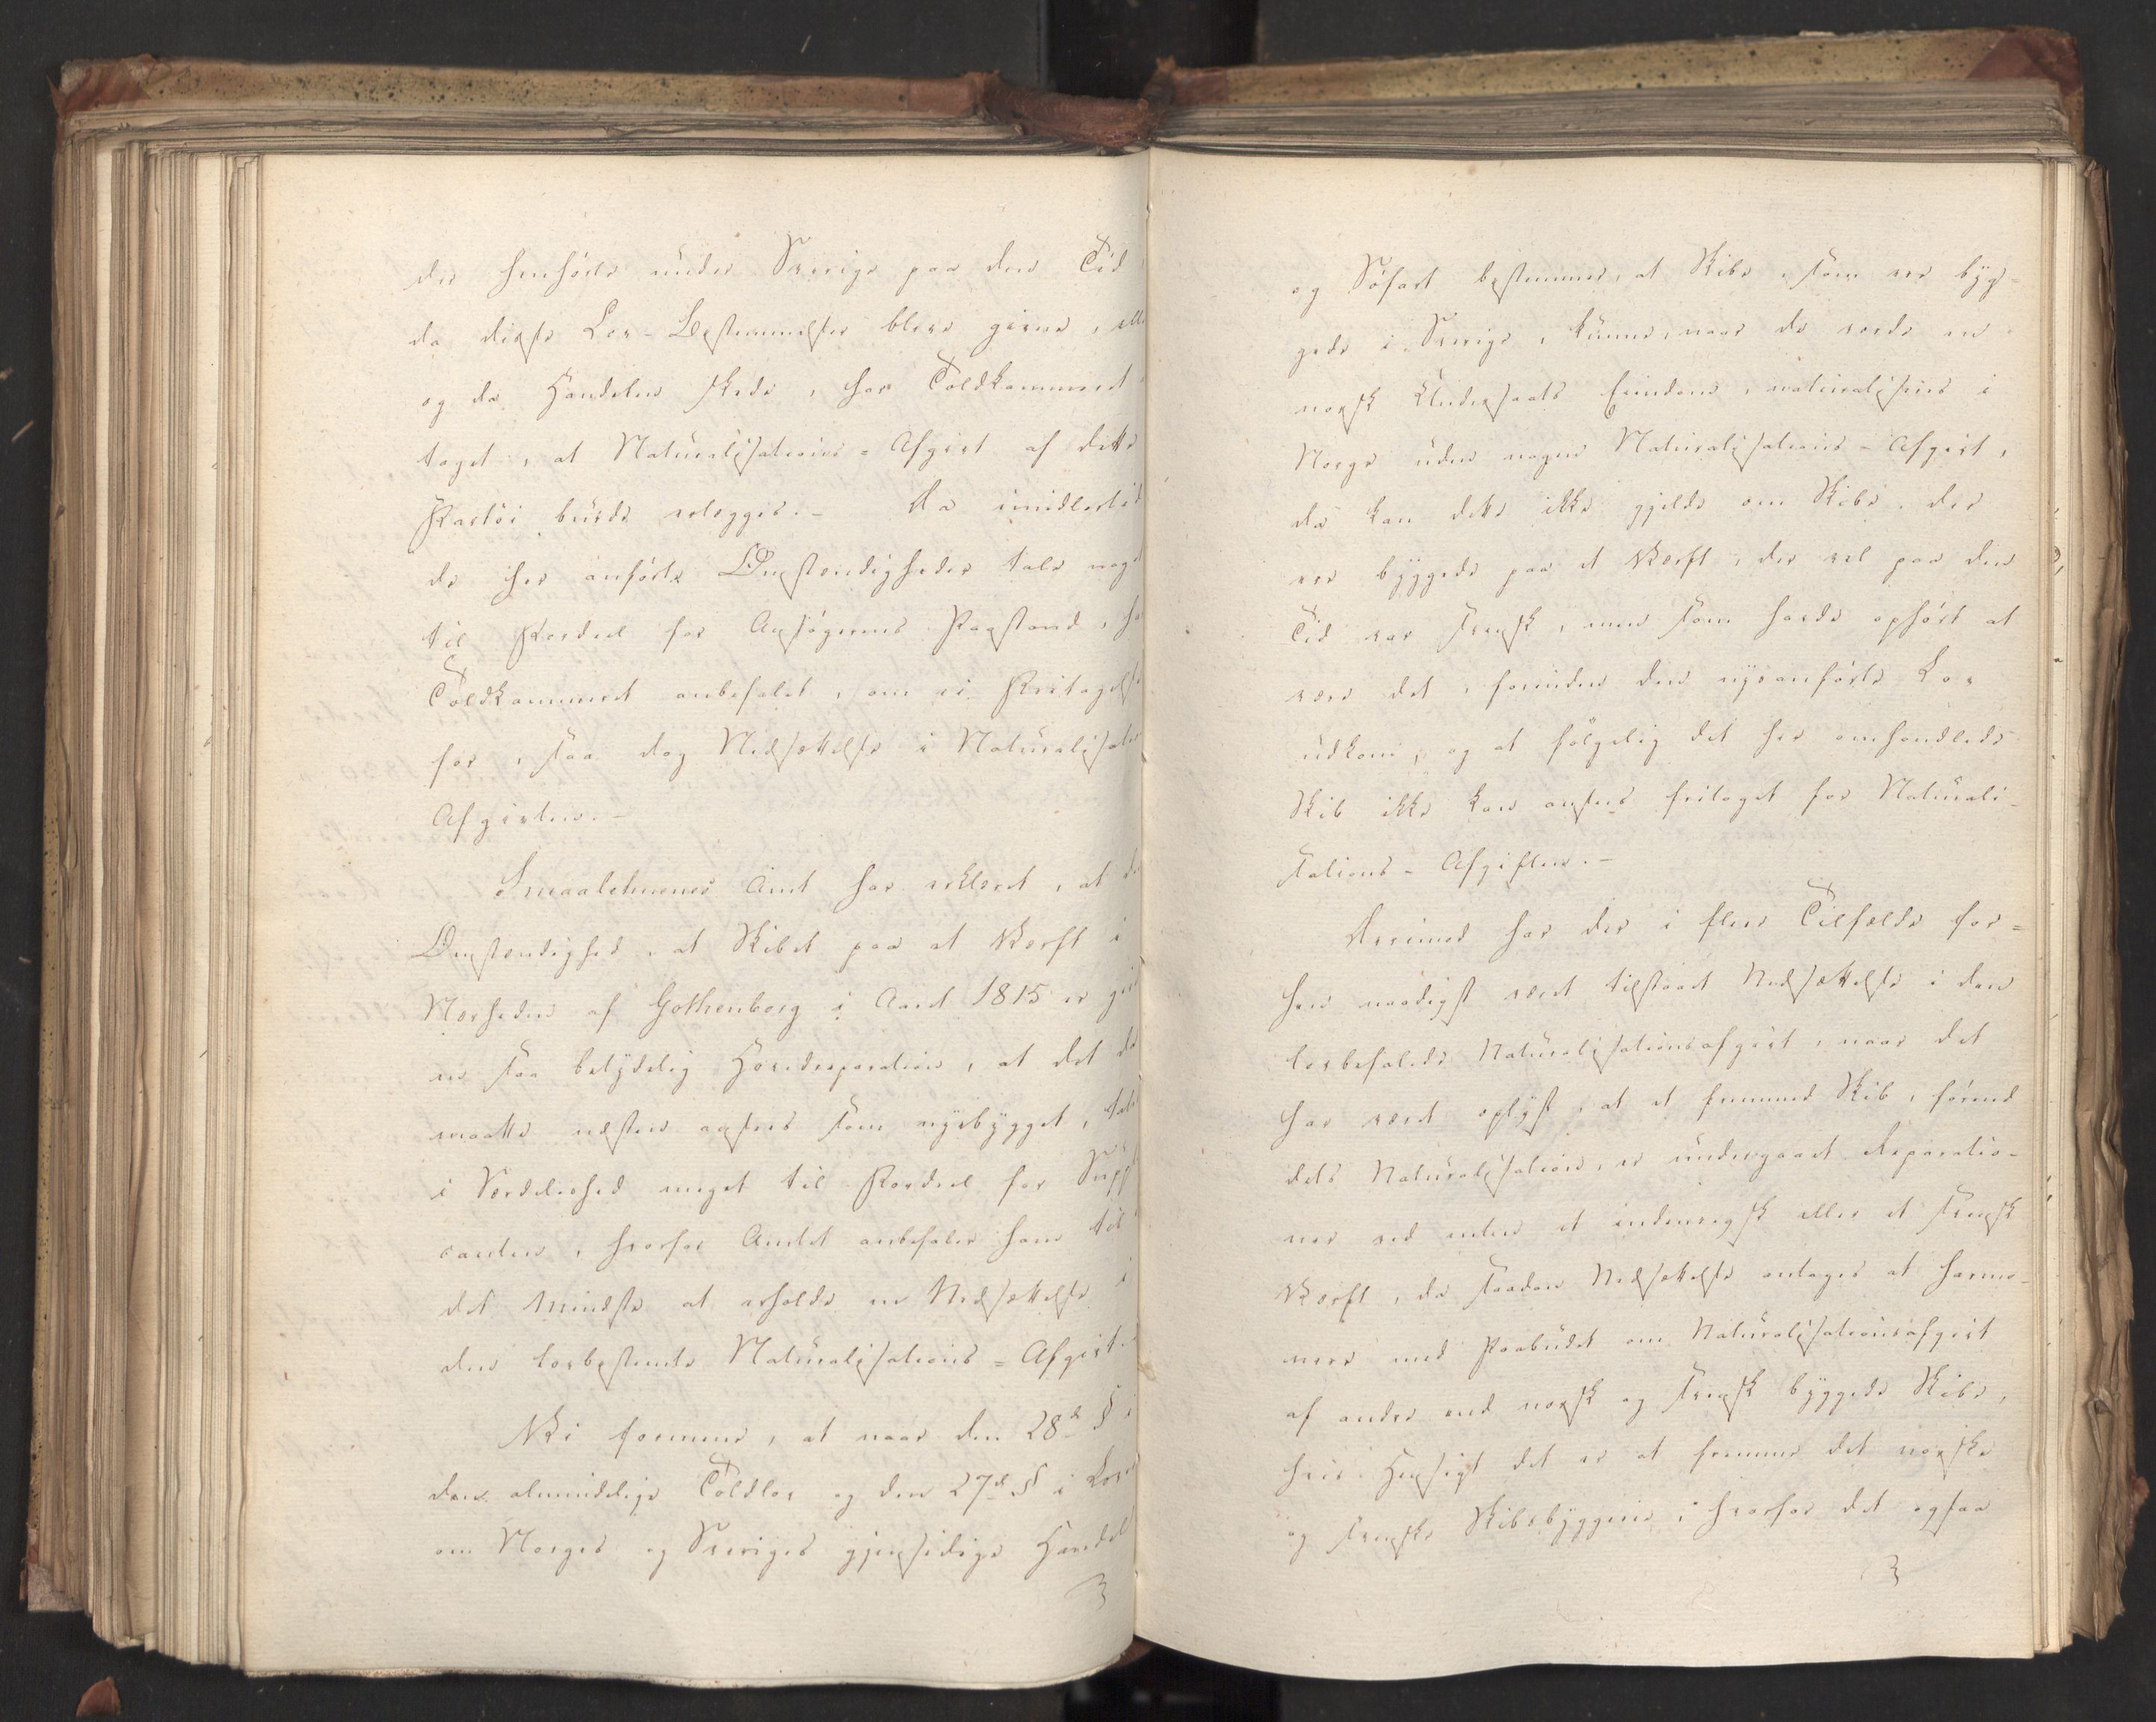 der henhörte under Sverige paa den Tid
da disse Lov-Bestemmelser bleve givne, ell
og da Handelen skede, har Toldkammeret
taget, at Naturalisations-Afgivt af dette
Fartöi burde erlægges.- Da imidlertid
de her anförte Omstændigheder tale noget
til Fordeel for Ansögerens Paastand, ha
Toldkammeret anbefalet, om ei Fritagelse
for, saa dog Nedsættelse i Naturalisatio
Afgivten.-
Smaalehnenes Amt har erklæret, at de
Omstændighed, at Skibet paa et Værft i
Nærheden af Gothenborg i Aaret 1815 er giv
en saa betydelig Hovedreparation, at det de
maatte næsten ansees som nyebygget, tale
i Særdeleshed meget til Fordeel for Suppl
canten, hvorfor Amtet anbefaler ham til
det mindste at erholde en Nedsættelse i
den lovbestemte Naturalisations-Afgivt.
Vi formene, at naar den 28de § i
den almindelige Toldlov og den 27de § i Lov
om Norges og Sveriges gjensidige Handel
og Söfart bestemmer, at Skibe, som ere byg-
gede i Sverige, kunne, naar de vorde en
norsk Undersaats Eiendom, naturaliseres i
Norge uden nogen Naturalisations-Afgivt,
da kan dette ikke gjelde om Skibe, der
ere byggede paa et Værft, der vel paa den
Tid var svensk, men som havde ophört at
være det, forinden den nysanförte Lov
udkom, og at fölgelig det her omhandlede
Skib ikke kan ansees fritaget for Naturali-
sations-Afgiften.-
Derimod har der i flere Tilfælde for-
hen naadigst været tilstaaet Nedsættelse i den
lovbefalede Naturalisationsafgivt, naar det
har været oplyst, at et fremmed Skib, förend
dets Naturalisation, er undergaaet Reparatio-
ner ved enten et indenrigsk eller et svensk
Værft, da saadan Nedsættelse antages at harmo-
nere med Paabudet om Naturalisationsafgivt
af andre end norsk og svensk byggede Skibe,
hvis Hensigt det er at fremme det norske
og svenske Skibsbyggerie, hvorfor det ogsaa